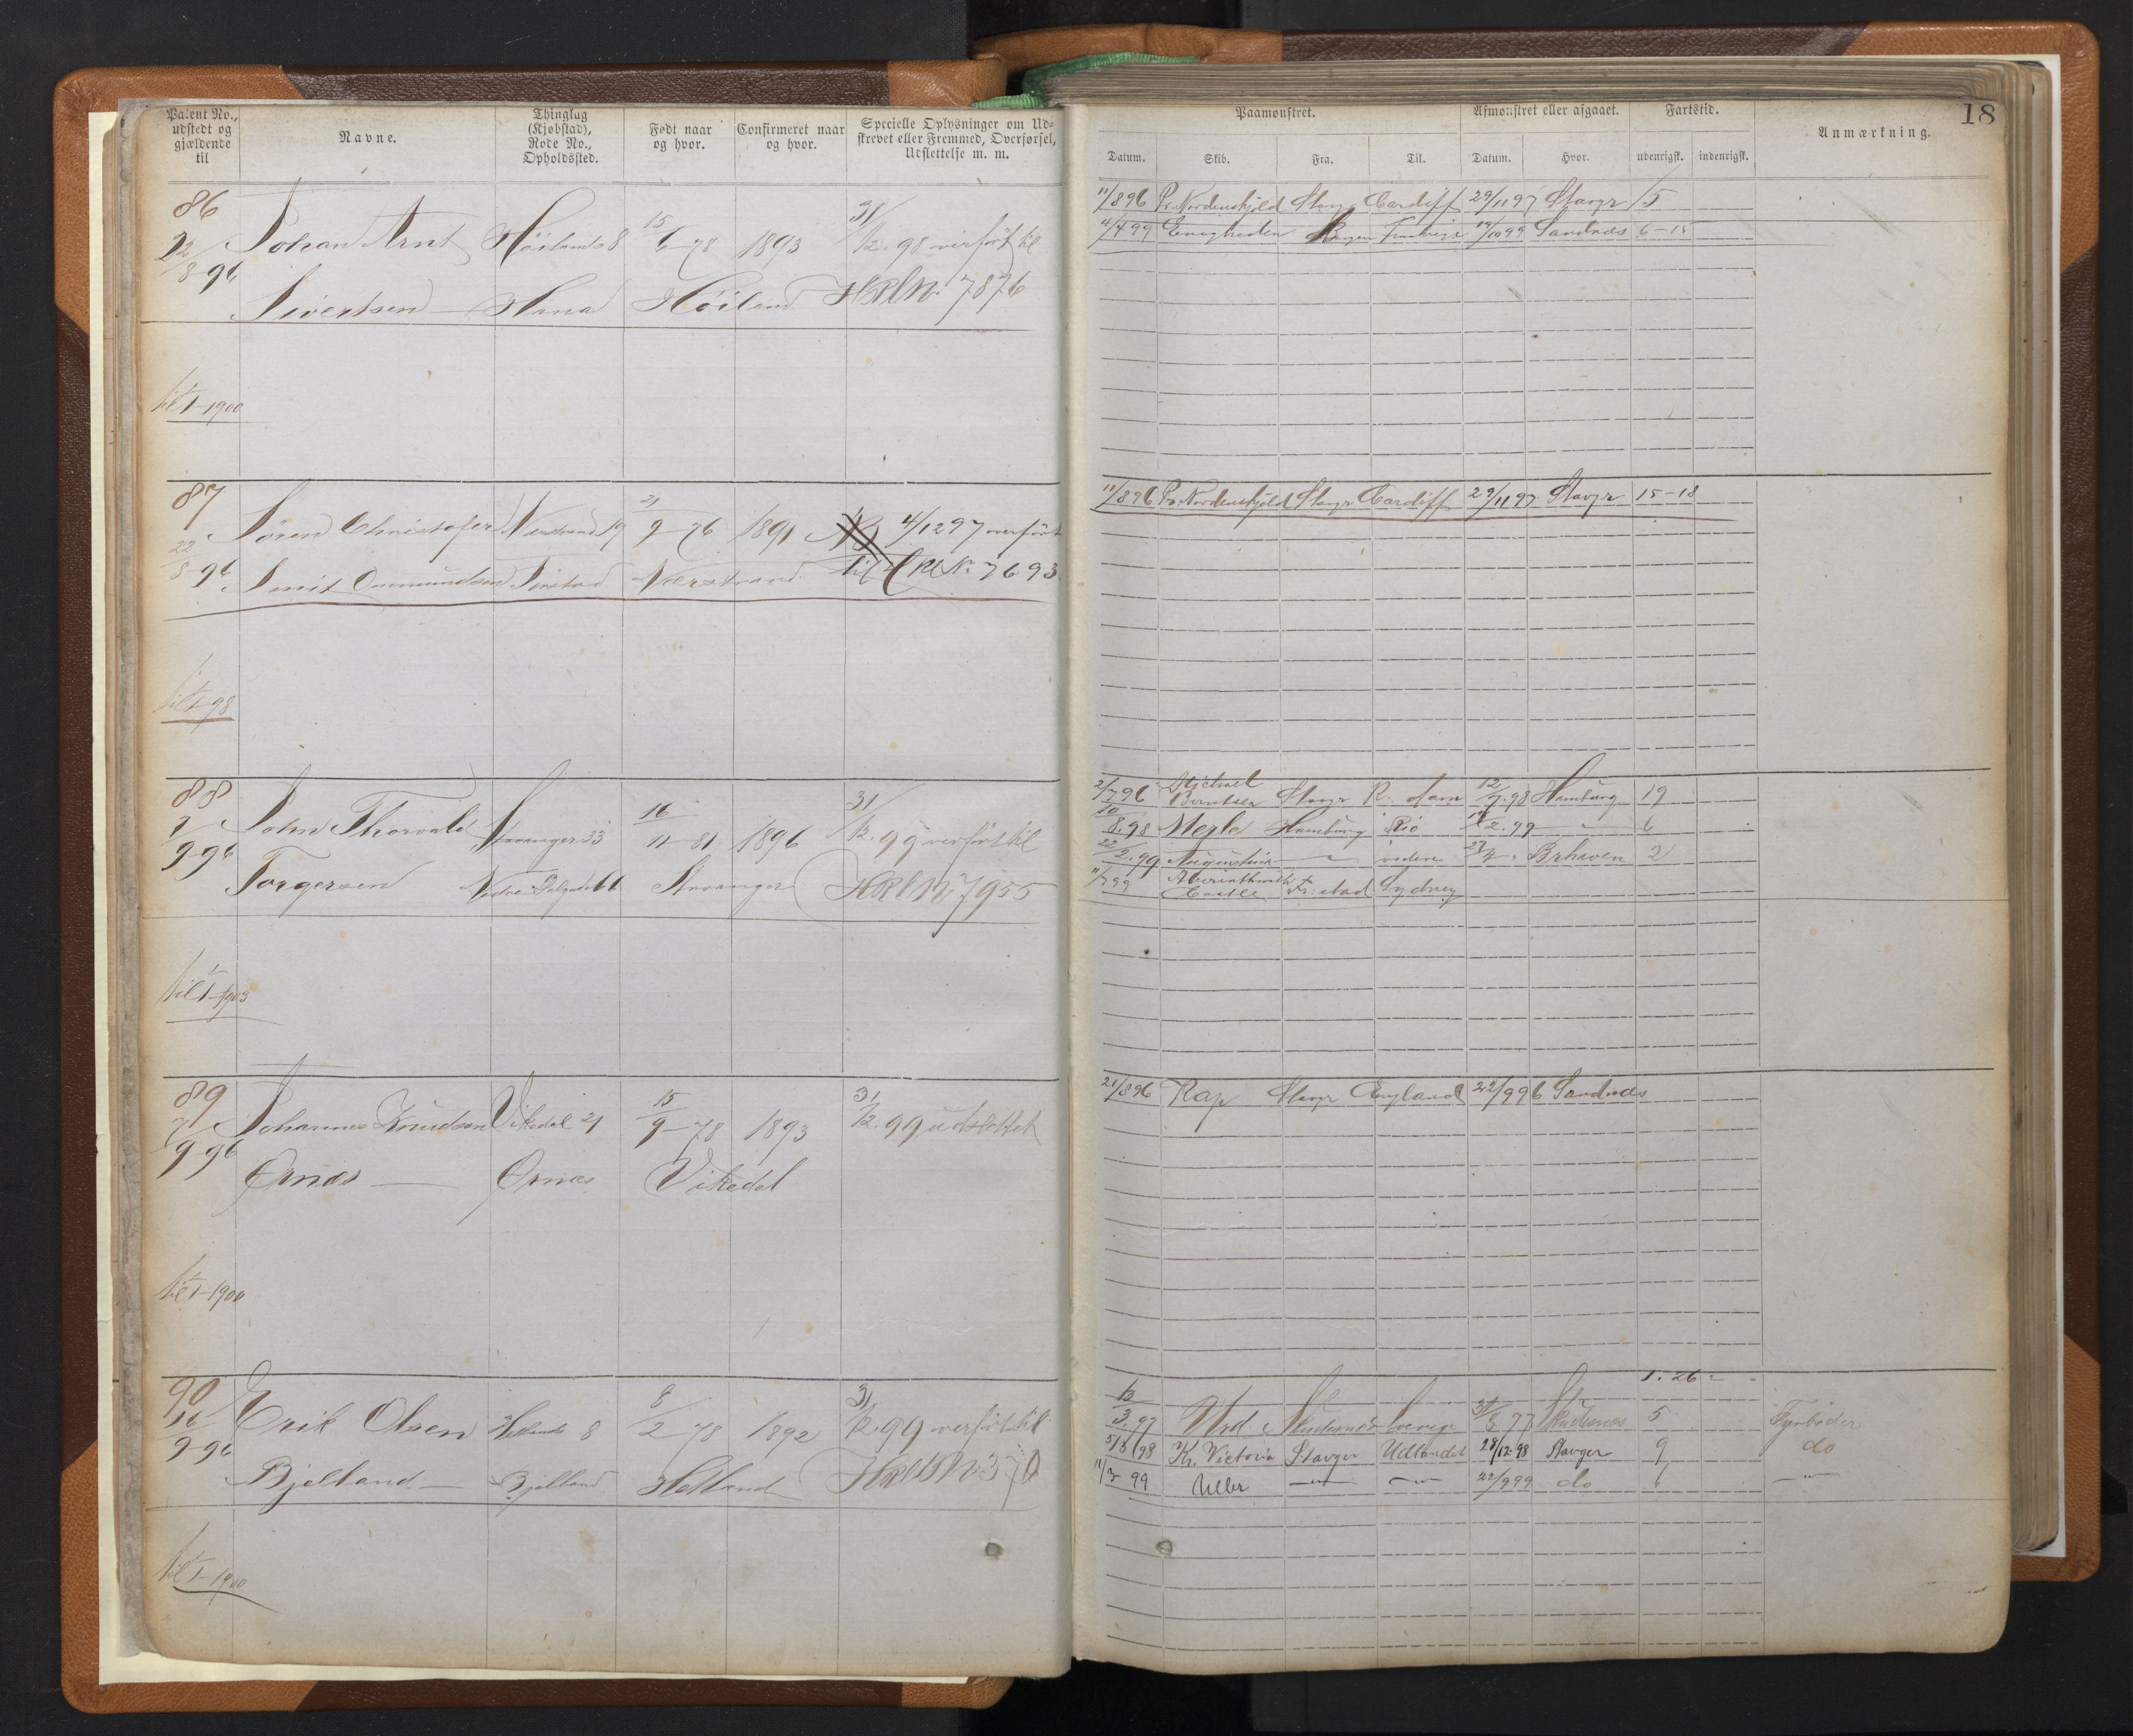 Patent No., udstedt og gjældende til
Navne.
Thinglag (Kjøbstad), Rode No., Opholdssted.
Født naar og hvor.
Confirmeret naar og hvor.
Specielle Oplysninger om Udskrevet eller Fremmed, Overførsel, Udslettelse m. m.
Paamønstret.
Afmønstret eller afgaaet.
Fartstid.
Anmærkning.
18
Datum. Skib. Fra. Til. Datum. Hvor. udenrigsk. indenrigsk.
86
22/8-96 Johan Arnt Höilands 8 15/6-78 1893 31/12.98 overført til
Sivertsen Hana Höiland HRl N. 7876
til 1/1-1900
11/8 96 Nordenskjöld Stavgr Cardiff 29/11 97 Stavgr 15
4/4 99 Enigheden 14/10 99 Sandnæs 6-15
87
22/8-96 Sören Christofer Nærstrand 19 21/9-76 1891 4/12 97 overført
Smit Ommundsen Nærstrand til Rl N. 7693
til 1/1-98
11/8 96 Nordenskjöld Stavgr Cardiff 29/11 97 Stavgr 15-18
88
1/9-96 John Thorvald Stavanger 33 16/11-81 1896 31/12.99 overført til
Torgersen Nedre Dalgade 61 Stavanger HRl N 7955
til 1/1-1903
2/7 96 Michael Berntsen Stavgr R.dam 12/7.98 Hamburg 19
10/8.98 Hamburg Rio 2.99 " 6
22/2.99 Augustina " videre 27/4 " Brhaven 2
11/7 99 Castle Fr:stad Sydney
89
7/9-96 Johannes Knudsen Vikedal 21 15/9-78 1893 31/12.99 udslettet
Ørnes Ørnes Vikedal
til 1/1-1900
21/8 96 Rap Stavgr England 22/9 96 Sandnæs
90
16/9-96 Erik Olsen Hetlands 8 8/2-78 1892 31/12 99 overført til
Bjelland Bjelland Hetland
til 1/1-1900
1.26
13/3.97 Urd Skudesnæs Sverige 31/8 97 Skudesnæs 5 Fyrbøder
5/8 98 Kr. Victoria Stavgr Udlandet 28/12.98 Stavger 9 do
11/3-99 Uller " " 22/9 99 do 6 "